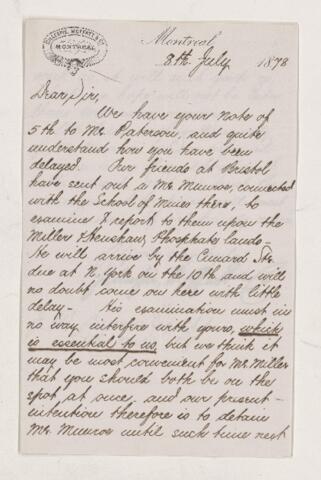 GILLESPIE, MOFFATT & CO
MONTREAL
Montreal
8th July 1878
Dear Sir,
We have your note of
5th to Mr. Paterson, and quite
understand how you have been
delayed. Our friends at Bristol
have sent out a Mr Munroe, connected
with the School of Mines there, to
examine & report to them upon the
Miller & Henshaw Phosphate lands—
He will arrive by the Cunard Str.
due at N. York on the 10th and will
no doubt come on here with little
delay— His examination must in
no way interfere with yours, which
is essential to us, but we think it
may be most convenient for Mr. Miller
that you should both be on the
spot, at once, and our present—
intention therefore is to detain
Mr. Munroe until such time next